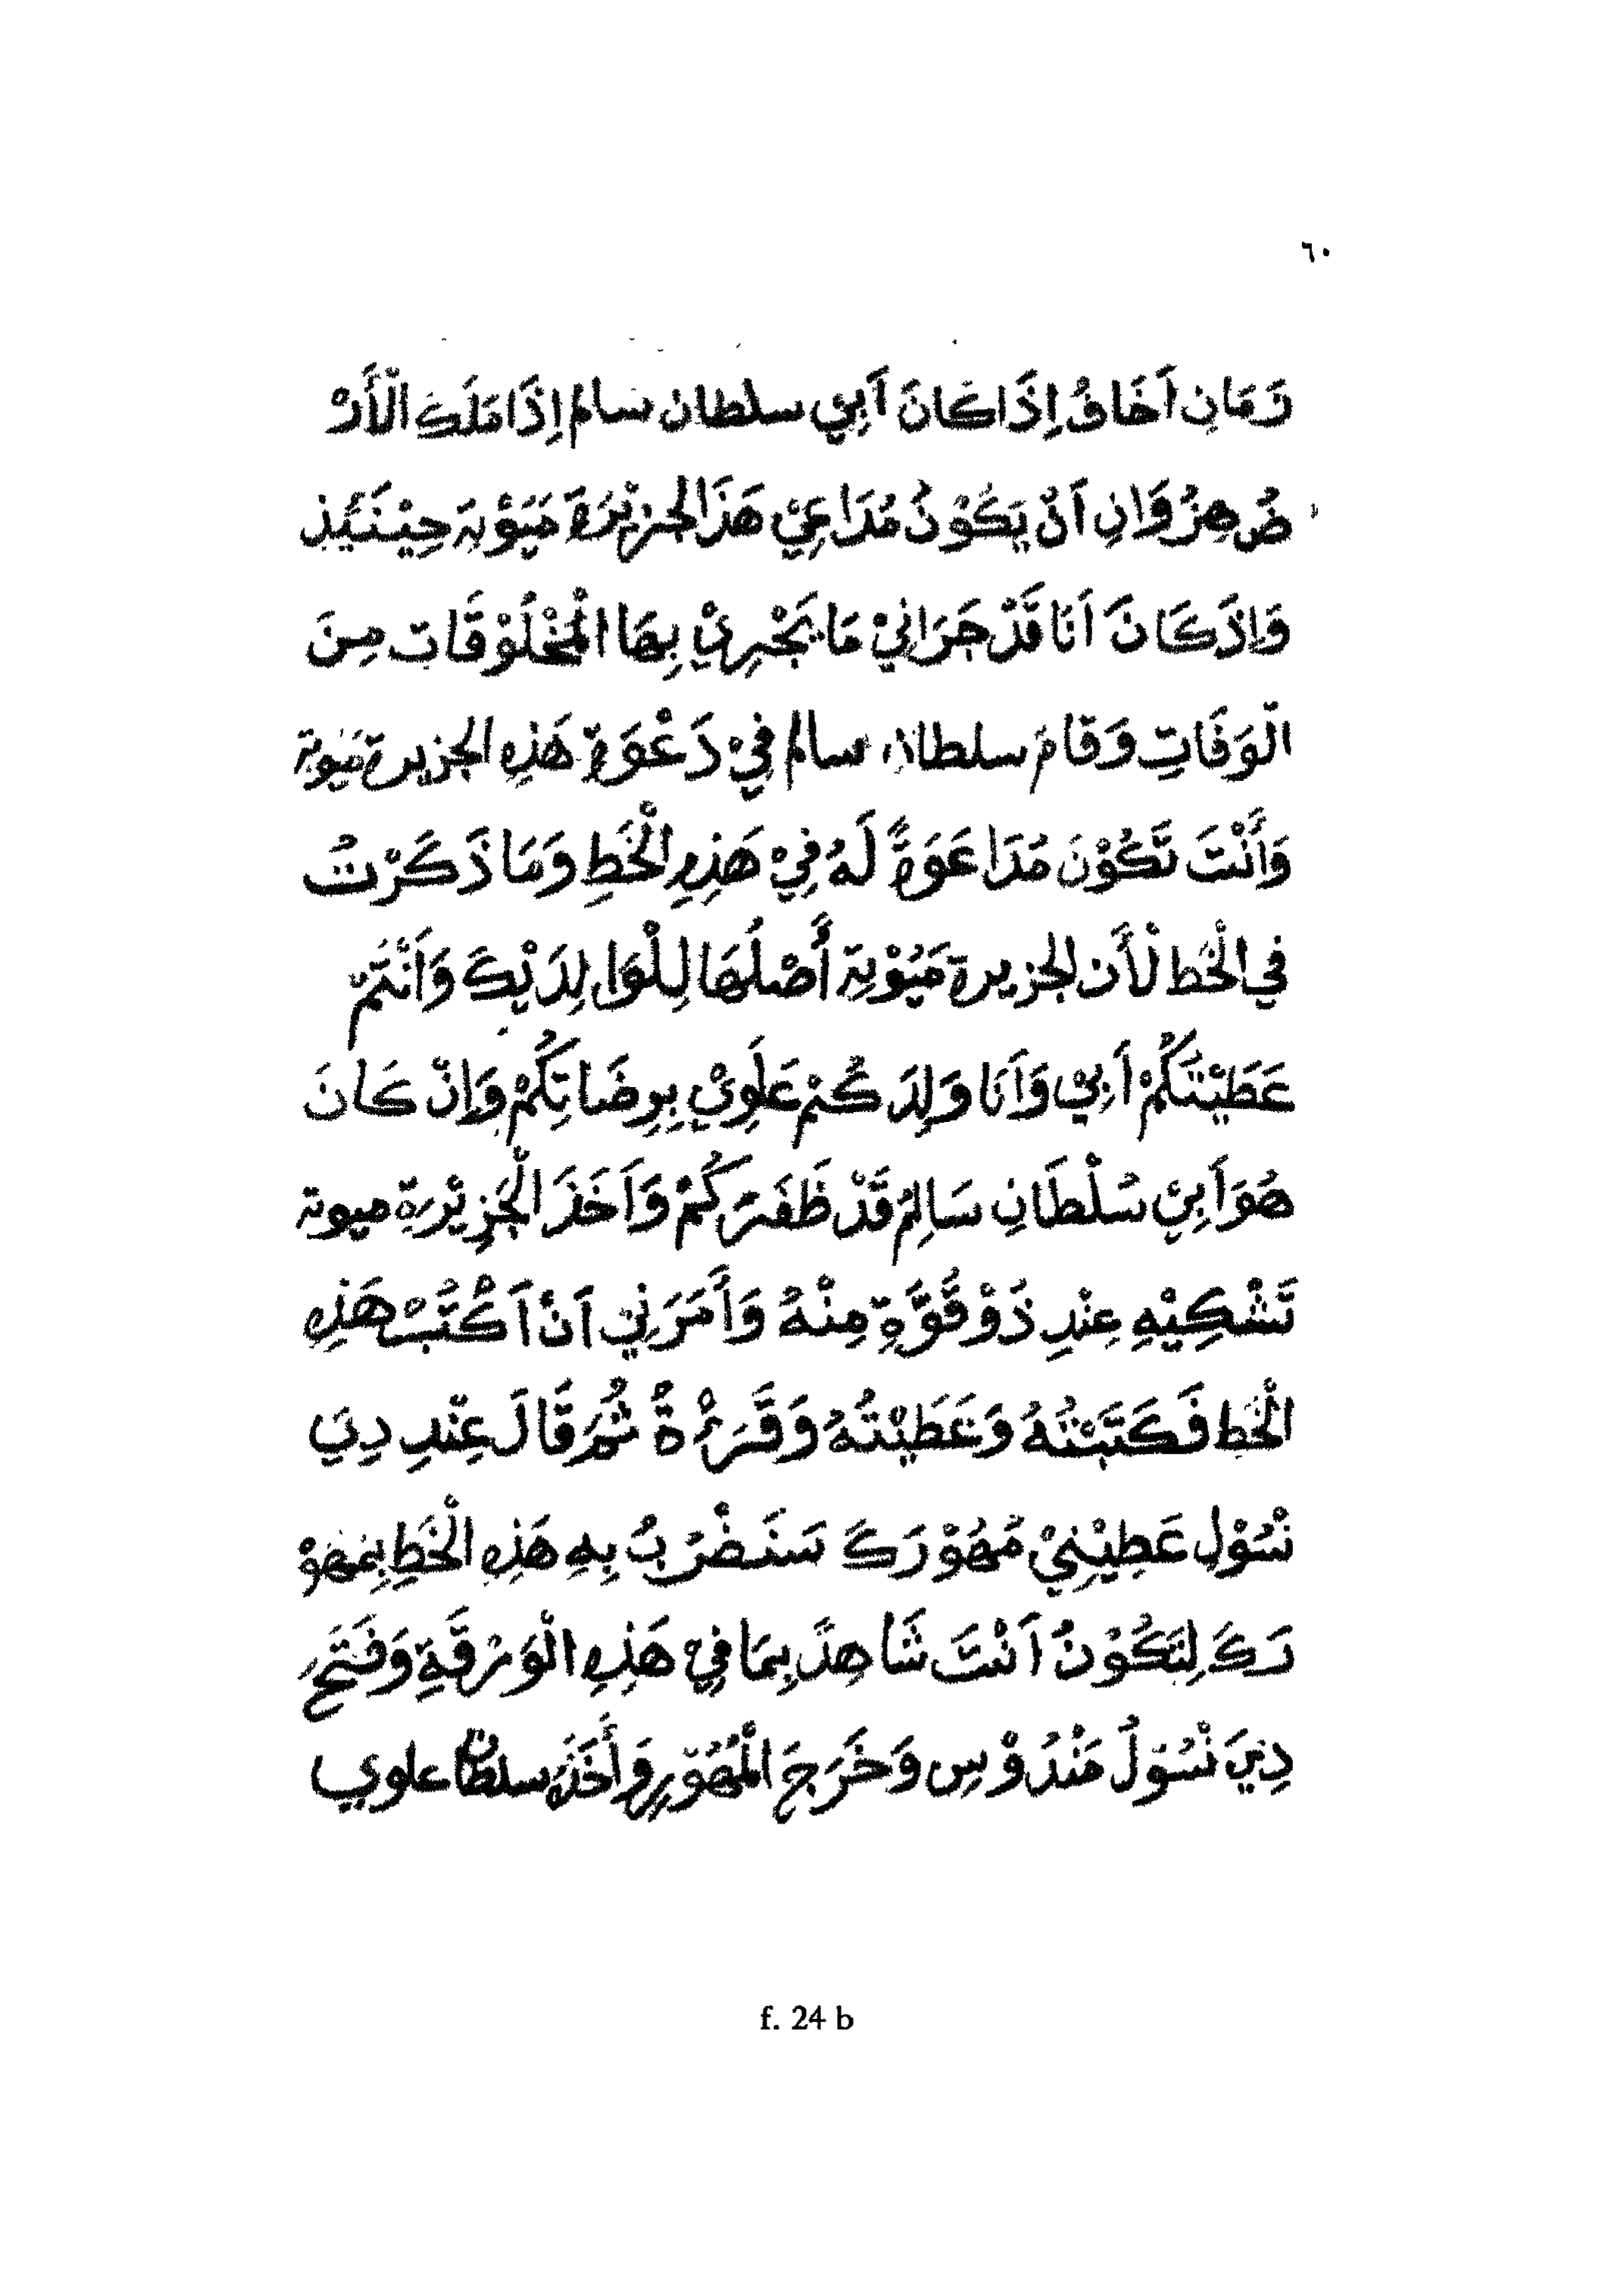 ٦٠
زَمَانِ اَخَافُ اِذَا كَانَ اَبِيْ سلطان سالم اِذَا مَلَكَ الْأَرْ
ضُ هِزُوَانِ اَنْ يَكُوْنُ مُدَاعِيْ هَذَا الجزِيْرَةِ مَيُوْتَةِ حِيْنَئِذِ
وَاِذَكَانَ اَنَا قَدْ جَرَانِيْ مَا يَجْرِيْ بِهَا الْمَخْلُوْقَاتِ مِنَ
الْوَفَاتِ وَقَامَ سلطان سالم فِيْ دَعْوَةِ هَذِهِ الجزيرة ميوتة
وَأَنْتَ تَكُوْنَ مُدَاعَوَةً لَهُ فِيْ هَذِهِ الْخَطِ وَمَا ذَكَرْتُ
في الْخَط لْأَن الجزيرة مَيُوْتِة أَصْلُهَا لِلْوَالِدَيْكَ وَأَنْتُمْ
عَطَيْتَكُمْ اَبِيْ وَاَنَا وَلِدَكُمْ عَلَوِيْ بِرِضَاتِكُمْ وَاِنْ كَانَ
هُوَ اَبِيْ سُلْطَانِ سَالِمْ قَدْ ظَفَرَكُمْ وَاَخَذَ الْجَزِيْرَة ميوتة
تَشْكِيْهِ عِنْدِ ذُوْ قُوَّةٍ مِنْهُ وَأَمَرَنِيْ اَنْ اَكْتُبْ هَذِهِ
الْخَطِ فَكَتَبْتُهُ وَعَطَيْتُهُ وَقَرَءْةُ ثُمَّ قَالَ عِنْدِ دِيَ
نْسُوْلِ عَطِيْنِيْ مُهُوْرَكَ سَنَضْرَبُ بِهِ هَذِهِ الْخَطِ بِمُهُوْ
رَكَ لِتَكُوْنُ اَنْتَ شَاهِدً بِمَا فِيْ هَذِهِ الْوَرْقَةِ وَفَتَحَ
دِيَ نْسُوْلُ مَنْدُوْسِ وَخَرَجَ الْمُهُوْرِ وَأَخَذَ سلطان علوي
f. 24 b